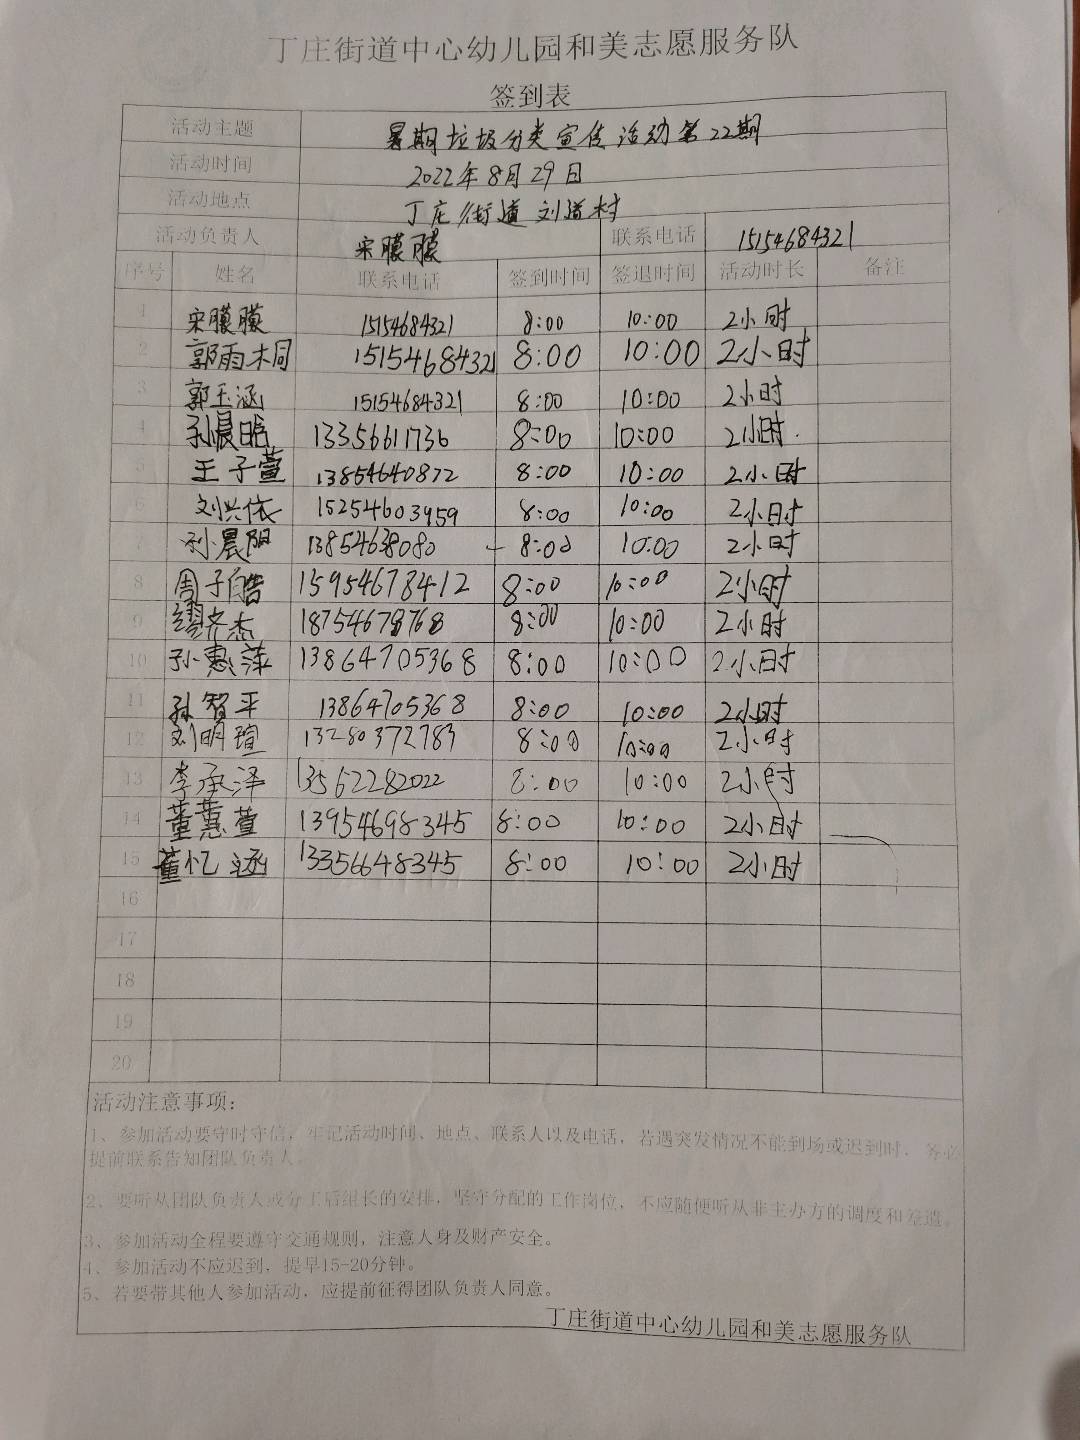 丁庄街道中心幼儿园和美志愿服务队
签到表
活动主题 暑期垃圾分类宣传活动第22期
活动时间 2022年8月29日
活动地点 丁庄街道刘道村
活动负责人 宋朦朦 联系电话 15154684321
序号 姓名 联系电话 签到时间 签退时间 活动时长 备注
1 宋朦朦 15154684321 8:00 10:00 2小时
2 郭雨桐 15154684321 8:00 10:00 2小时
3 郭玉涵 15154684321 8:00 10:00 2小时
4 孙晨晗 13356611736 8:00 10:00 2小时
5 王子萱 13854640872 8:00 10:00 2小时
6 刘兴依 15254603959 8:00 10:00 2小时
7 孙晨阳 13854638080 8:00 10:00 2小时
8 周子皓 15954678412 8:00 10:00 2小时
9 齐杰 8:00 10:00 2小时
10 孙惠萍 13864705368 8:00 10:00 2小时
11 孙智平 13864705368 8:00 10:00 2小时
12 刘明瑄 13280372783 8:00 10:00 2小时
13 李承泽 13562282022 8:00 10:00 2小时
14 董蕙萱 13954698345 8:00 10:00 2小时
15 董忆涵 13356648345 8:00 10:00 2小时
16
17
18
19
20
活动注意事项:
1、参加活动要守时守信，牢记活动时间、地点、联系人以及电话，若遇突发情况不能到场或迟到时，务必
提前联系告知团队负责人。
2、要听从团队负责人或分工后组长的安排，坚守分配的工作岗位，不应随便听从非主办方的调度和差遣。
3、参加活动全程要遵守交通规则，注意人身及财产安全。
4、参加活动不应迟到，提早15-20分钟。
5、若要带其他人参加活动，应提前征得团队负责人同意。
丁庄街道中心幼儿园和美志愿服务队